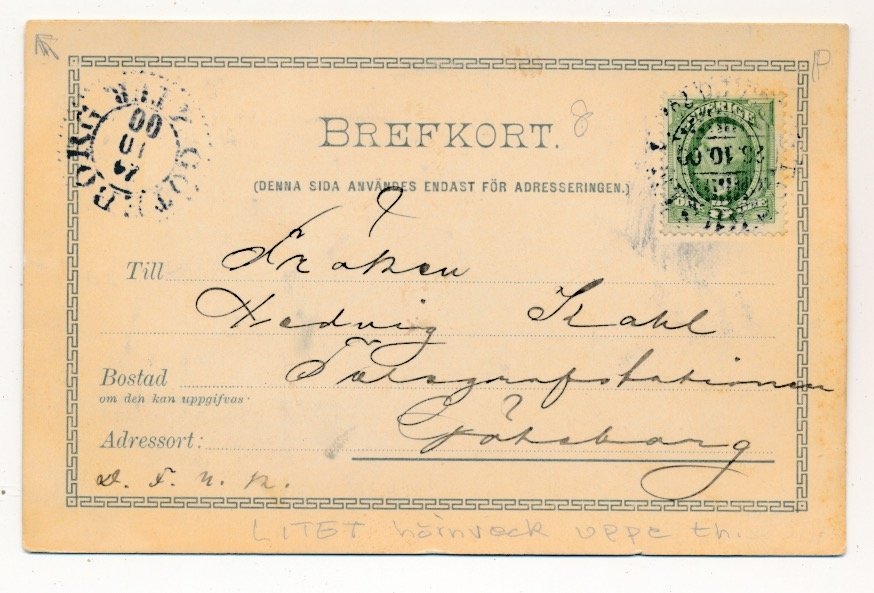 8
BREFKORT.
(DENNA SIDA ANVÄNDES ENDAST FÖR ADRESSERINGEN.)
SVERIGE
26.10.00
GÖTEBORG
10
00
Till Fröken
Hedvig Kahl
Bostad Telegrafstationen
om den kan uppgifvas
Adressort: Göteborg
D. F. U. K.
LITET hörnveck uppe th.